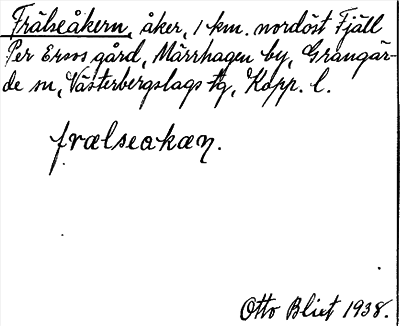 Frälseåkern, åker, 1 km. nordöst Fjäll
Per Ersos gård, Mårrhagen by, Grangär-
de sn, Västerbergslags tg, Kopp. l.
frælseakæn.
Otto Blixt 1938.